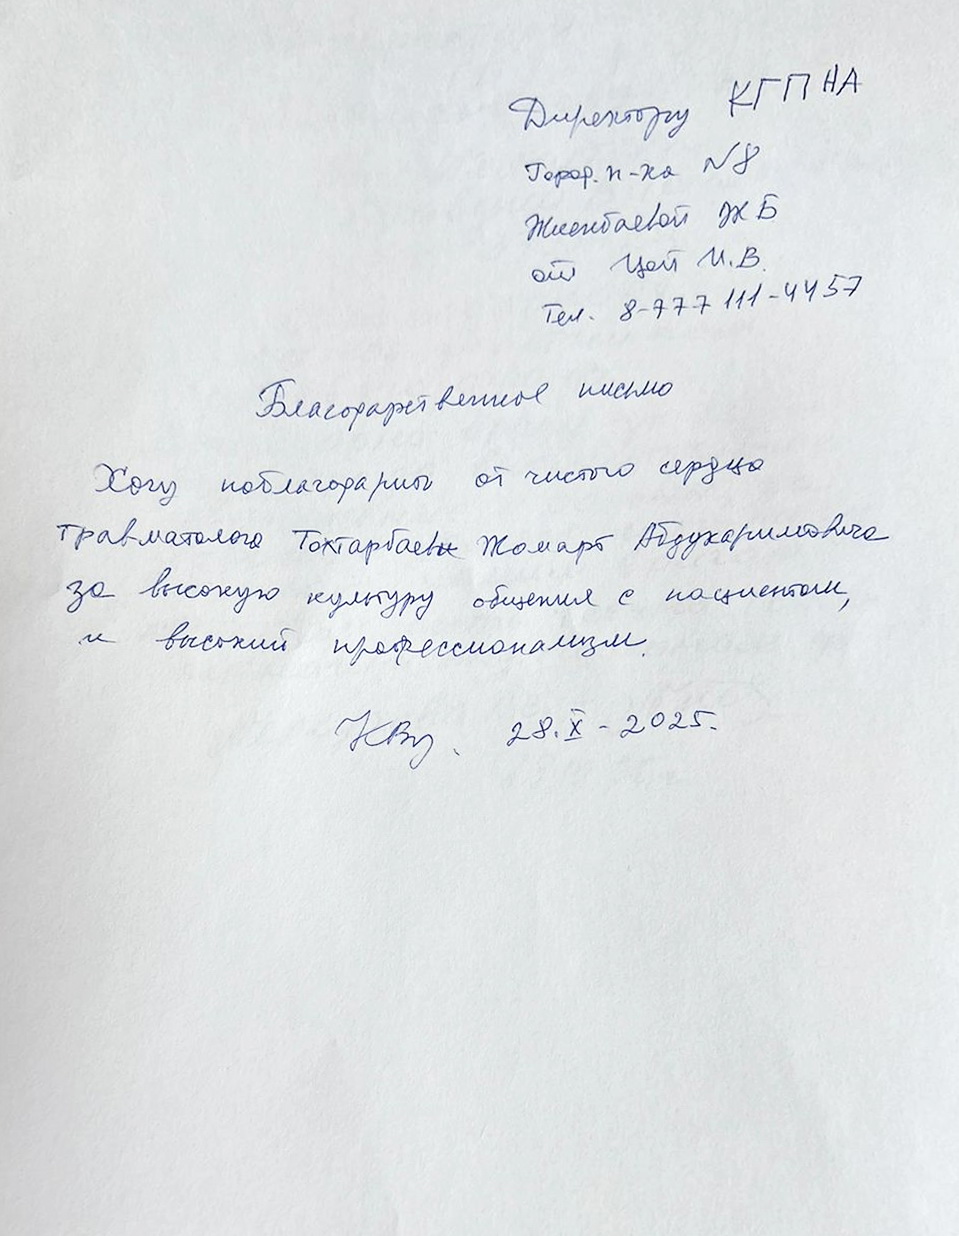 Директору КГП НА
Город. п-ка №8
Жиенбаевой Ж Б
от Цой И.В.
Тел. 8-777 111-4457
Благодарственное письмо
Хочу поблагодарить от чистого сердца
травматолога Токтарбаева Жомарт Абдукаримовича
за высокую культуру общения с пациентом,
и высокий профессионализм.
28.X - 2025.